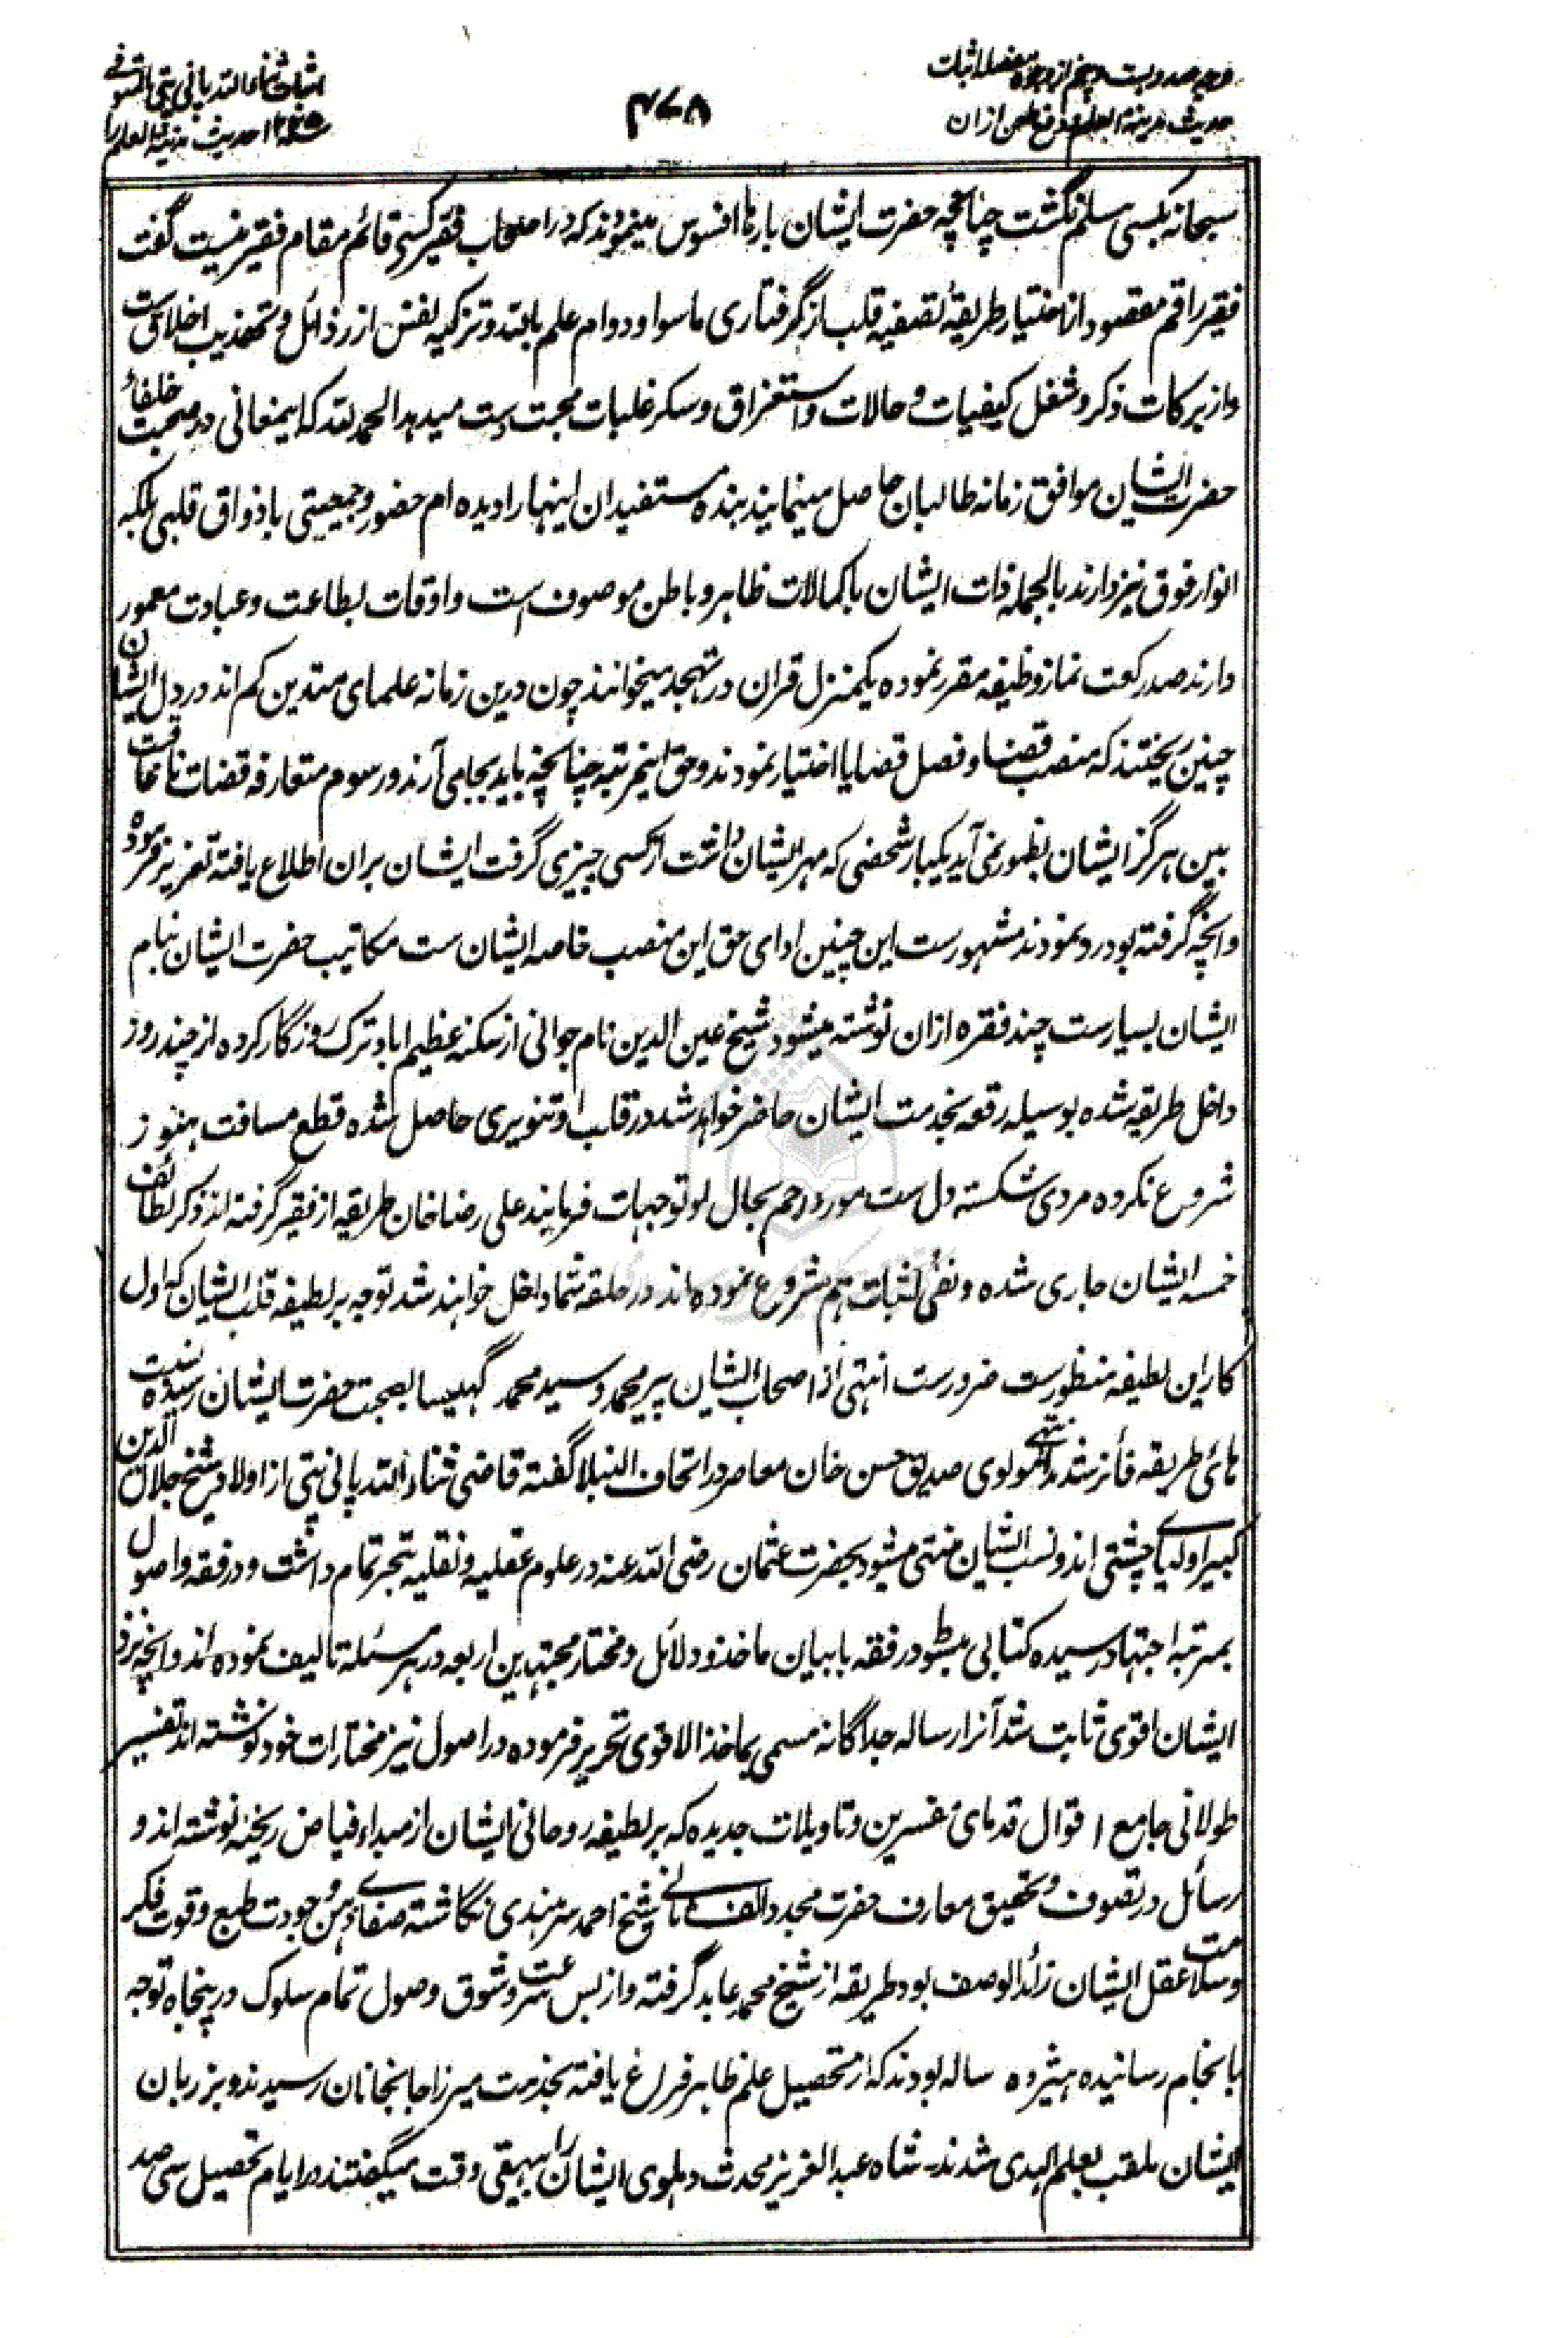 وجه صد و بست و پنجم از وجوه مفصله اثبات
حدیث مدینة العلم و دفع طعن ازان
۴۷۸
اثبات ثناء الله پانی پتی المتوفی
سنه ۱۲۲۵ حدیث مدینة العلم را
سبحانه بکسی مسلم نگشت چنانچه حضرت ایشان بارها افسوس مینمودند که در اصحاب فقیر کسی قائم مقام فقیر نیست گفت
فقیر راقم مقصود از اختیار طریقه تصفیه قلب از گرفتاری ماسوا و دوام علم بالله و تزکیه نفس از رذائل و تهذیب اخلاق ست
و از برکات ذکر و شغل کیفیات و حالات و استغراق و سکر غلبات محبت دست میدهد الحمد لله که اینمعانی در صحبت خلفاء
حضرت ایشان موافق زمانه طالبان حاصل مینمایند بنده مستفیدان اینها را دیده ام حضور و جمعیتی با ذواق قلبی بلکه
انوار فوق نیز دارند بالجمله ذات ایشان با کمالات ظاهر و باطن موصوف ست و اوقات بطاعت و عبادت معمور
دارند صد رکعت نماز وظیفه مقرر نموده یکمنزل قران در تهجد میخوانند چون درین زمانه علمای متدین کم اند در دل ایشان
چنین ریختند که منصب قضا و فصل قضایا اختیار نمودند و حق اینمرتبه چنانچه باید بجا می آرند و رسوم متعارفه قضات ناعاقبت
بین هرگز از ایشان بظهور نمی آید یکبار شخصی که مهر ایشان داشت از کسی چیزی گرفت ایشان بران اطلاع یافته تعزیز فرموده
و انچه گرفته بود رد نمودند مشهورست این چنین ادای حق این منصب خاصه ایشان ست مکاتیب حضرت ایشان بنام
ایشان بسیارست چند فقره ازان نوشته میشود شیخ عین الدین نام جوانی از سکنه عظیم اباد ترک روزگار کرده از چند روز
داخل طریقه شده بوسیله رقعه بخدمت ایشان حاضر خواهد شد در قلب او تنویری حاصل شده قطع مسافت هنوز
شروع نکرده مردی شکسته دل ست مورد رحم بحال او توجهات فرمایند علی رضا خان طریقه از فقیر گرفته اند ذکر لطائف
خمسه ایشان جاری شده و نفی اثبات هم شروع نموده اند در حلقه شما داخل خواهند شد توجه بر لطیفه قلب ایشان که اول
کار این لطیفه منظورست ضرورست انتهی از اصحاب ایشان پیر محمد و سید محمد بصحبت حضرت ایشان رسیده بنسبت
هائی طریقه فائز شدند انتهی مولوی صدیق حسن خان معاصر در اتحاف النبلا گفته قاضی ثناء الله پانی پتی از اولاد شیخ جلال الدین
کبیر اولیای چشتی اند و نسب ایشان منتهی میشود بحضرت عثمان رضی الله عنه در علوم عقلیه و نقلیه تبحر تمام داشت و در فقه و اصول
بمرتبه اجتهاد رسیده کتابی مبسوط در فقه با بیان ماخذ و دلائل و مختار مجتهدین اربعه در هر مسئله تالیف نموده اند و انچه نزد
ایشان اقوی ثابت شد آنرا رساله جداگانه مسمی بماخذ الاقوی تحریر فرموده در اصول نیز مختارات خود نوشته اند تفسیر
طولانی جامع اقوال قدمای مفسرین و تاویلات جدیده که بر لطیفه روحانی ایشان از مبداء فیاض ریخته نوشته اند و
رسائل در تصوف و تحقیق معارف حضرت مجدد الف ثانی شیخ احمد سرهندی نگاشته صفای ذهن و جودت طبع و قوت فکر
و سلامت عقل ایشان زائد الوصف بود طریقه از شیخ محمد عابد گرفته و از بس سرعت و شوق وصول تمام سلوک در پنجاه توجه
بانجام رسانیده هیژده ساله بودند که از تحصیل علم ظاهر فراغ یافته بخدمت میرزا جانجانان رسیدند و بر زبان
ایشان ملقب بعلم الهدی شدند شاه عبد العزیز محدث دهلوی ایشان را بیهقی وقت میگفتند در ایام تحصیل سی صد